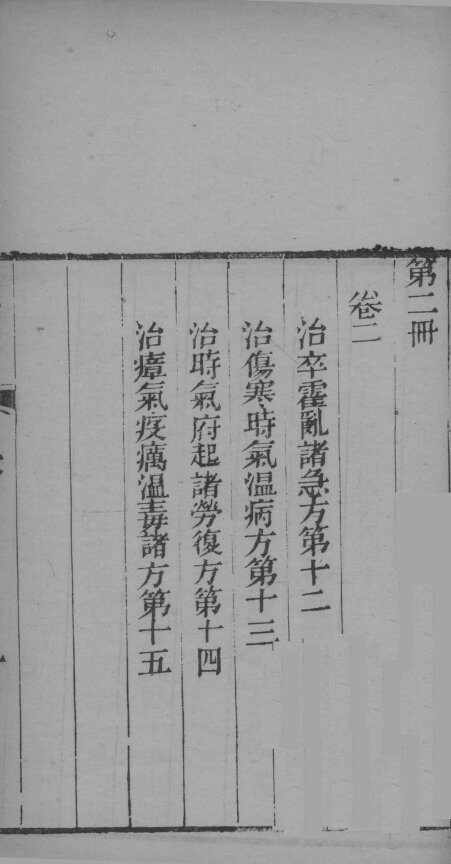 第二冊
卷二
治卒霍亂諸急方第十二
治傷寒時氣温病方第十三
治時氣府起諸勞復方第十四
治瘴氣疫癘温毒諸方第十五